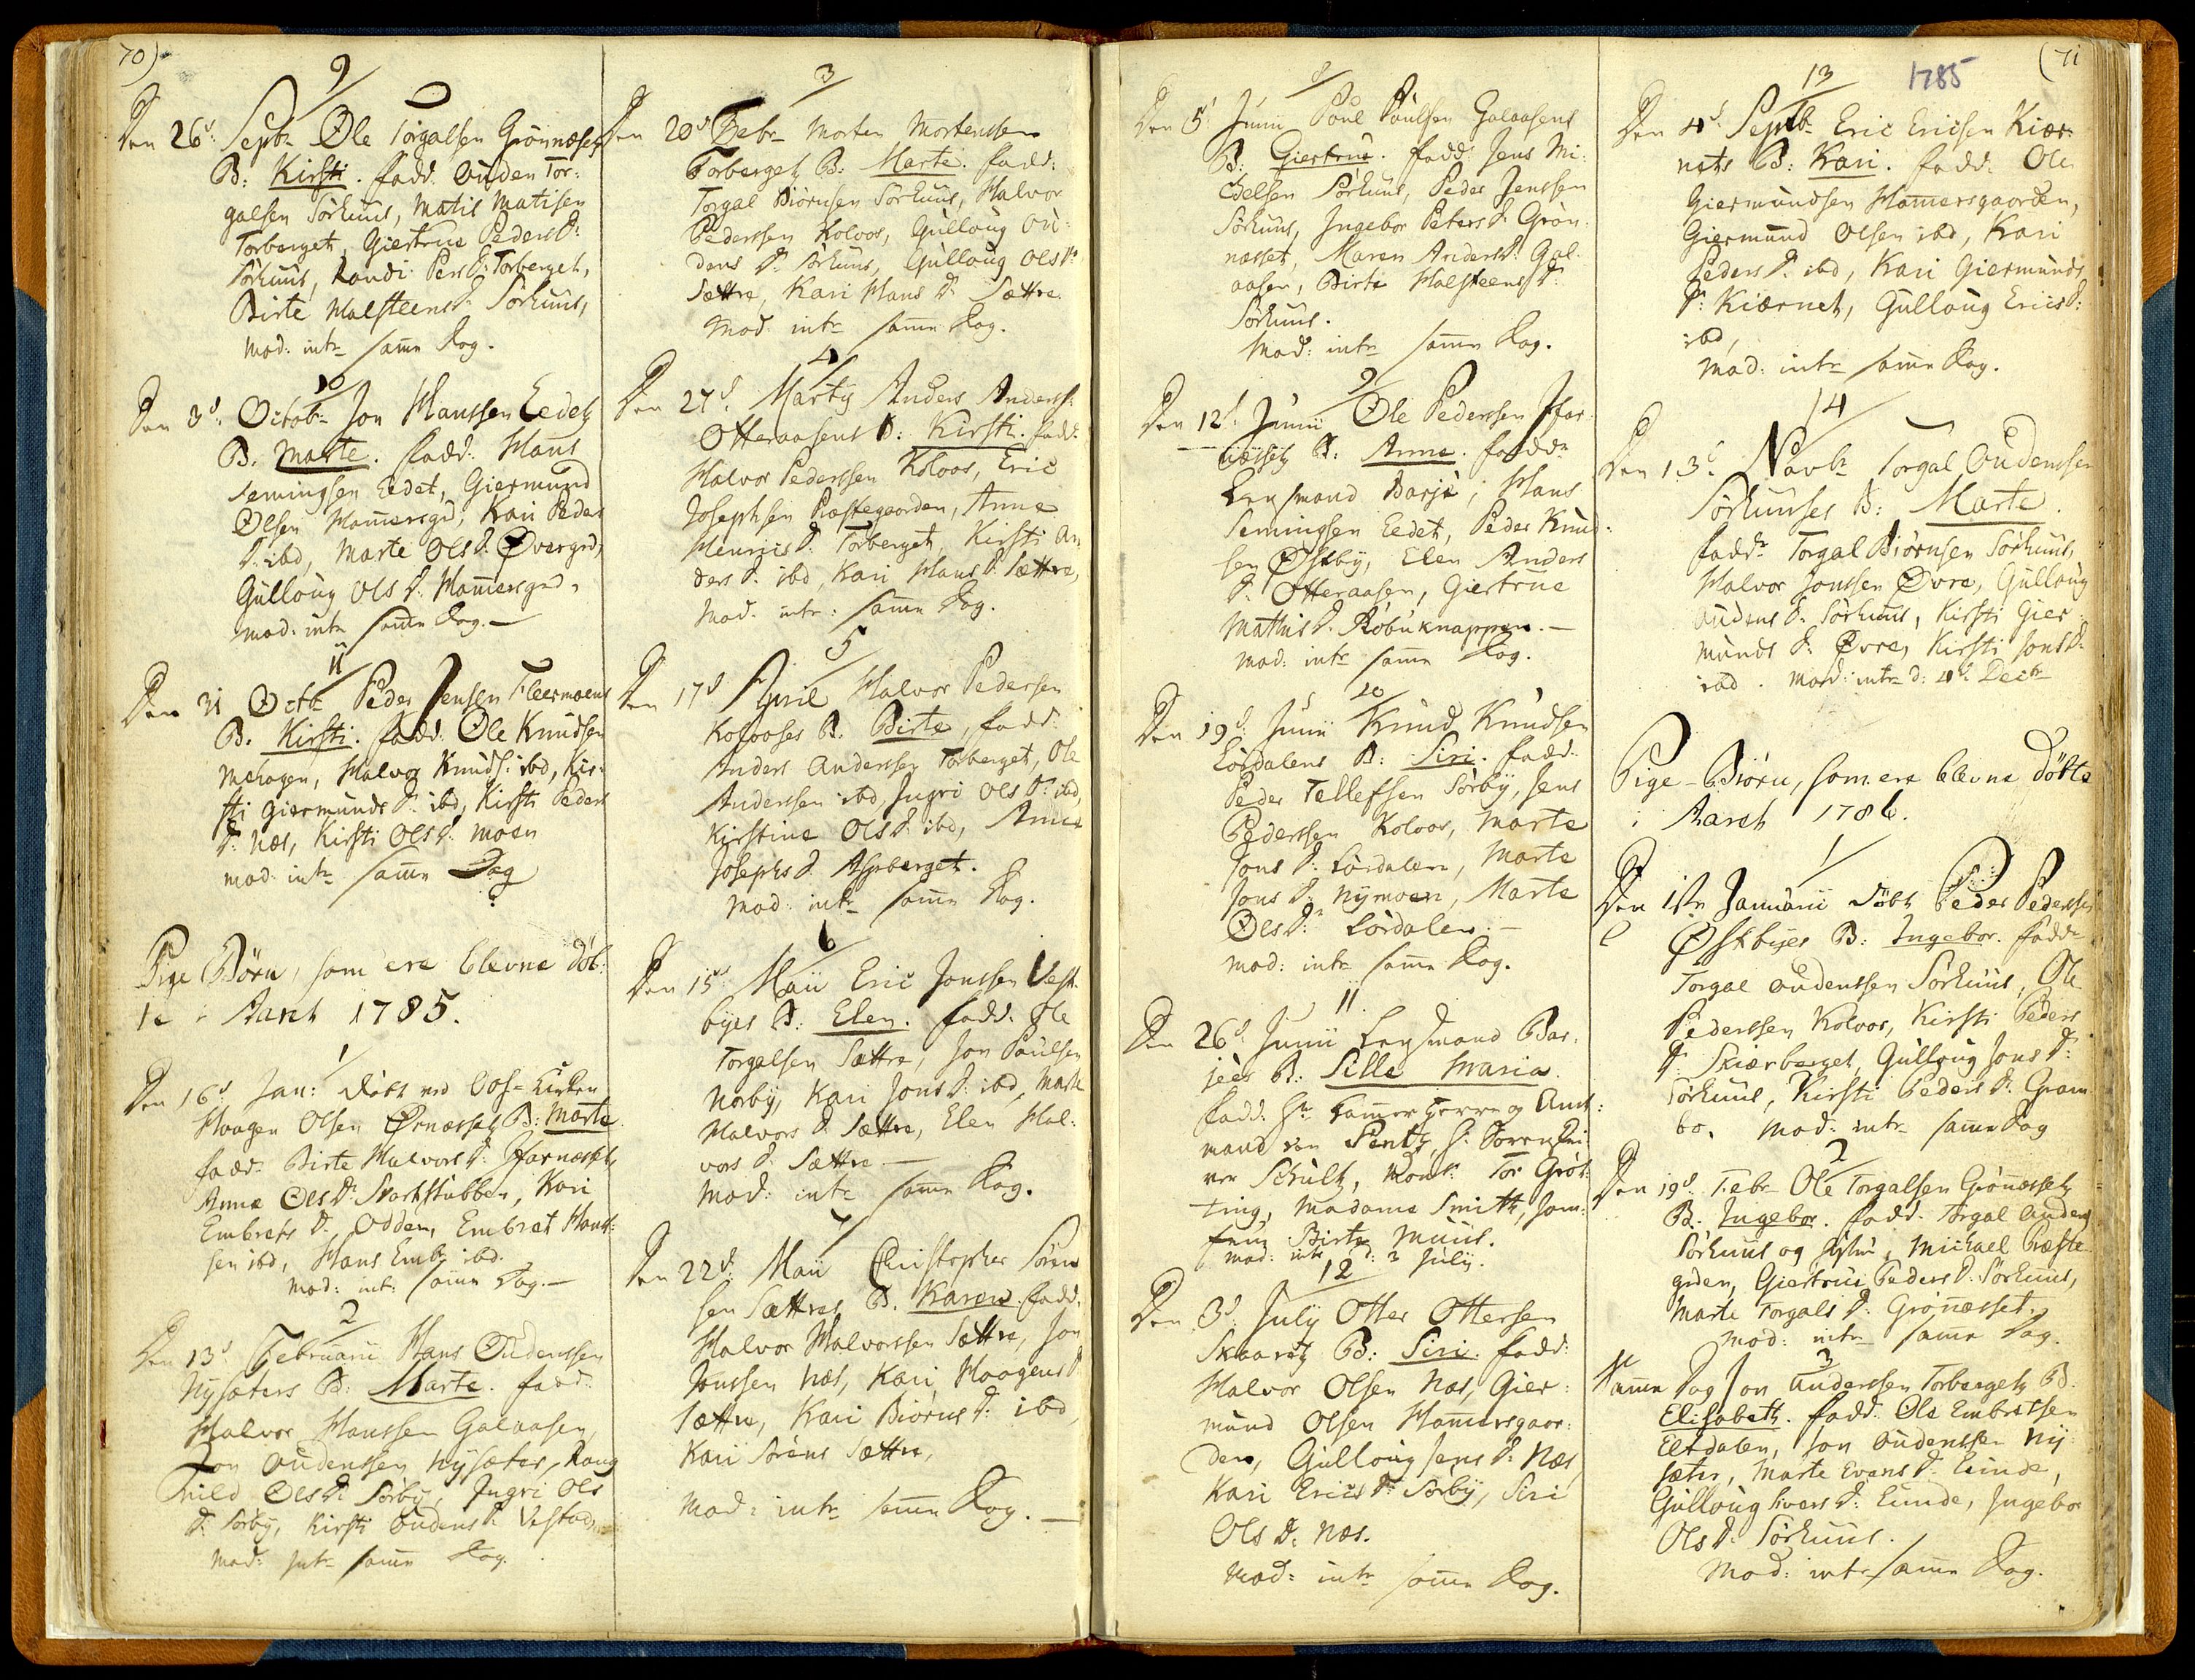 70)
9
Den 26d. Septbr Ole Torgalsen Grönnæsetz
B: Kirsti. fadd. Ouden Tor:
galsen Sörhuus, Matis Matisen
Torberget, Giertrue Peders D:
Sörhuus, Randi Pers D: Torberget,
Birte Halsteens D. Sörhuus,
Mod: intr samme Dag.
10
Den 3d. Octobr Jon Hanssen Eedetz
B. Marte. fadd. Hans
Semingsen Eedet, Giermund
Olsen Hammersgd, Kari Peders
D. ibd, Marte Ols D. Övergrd,
Gulloug Ols D. Hammersgrd.
mod. intr samme Dag. —
11
Den 31 Octbr Peder Jensen Fleermoens
B. Kirsti. fadd. Ole Knudsen
Mehagen, Halvor Knuds. ibd, Kir:
sti Giermunds D. ibd, Kirsti Peders
D. Næs, Kirsti Ols D. Moen
mod. intr samme Dag
Pige Börn, som ere blevne döb:
te i Aaret 1785.
1
Den 16d Jan: döbt ved Oos-Kirken
Haagen Olsen Örnæssetz B: Marte.
fadd. Birte Halvors D. Jfarnæset,
Anne Ols D. Svartstubben, Kari
Embrets D. Odden, Embret Hans:
sen ibd, Hans Embr. ibd.
mod: intr. samme Dag. —
2
Den 13d. Februarii Hans Oudenssen
Nysæters B: Marte. fadd.
Halvor Hanssen Galaasen,
Jon Oudenssen Nysæter, Rang
nild Ols D. Sörby, Jngri Ols
D. Sörby, Kirsti Oudens D. Vestad,
Mod: intr samme Dag.
3
Den 20d Febr Morten Mortenssen
Torbergetz B. Marte. fadd:
Torgal Biörnsen Sörhuus, Halvor
Pederssen Koloos, Gulloug Ou:
dens D. Sörhuus, Gulloug Ols D.
Sættre, Kari Hans D. Sættre.
Mod: intr samme Dag.
4
Den 27d. Martij Anders Anderss:
Otteraasens B: Kirsti. fadd.
Halvor Pederssen Koloos, Eric
Josephsen Præstegaarden, Anne
Henrics D. Torberget, Kirsti An
ders D. ibd, Kari Hans D. Sættre,
Mod. intr: samme Dag.
5
Den 17d April Halvor Pedersen
Koloses B. Birte, fadd.
Anders Anderssen Torberget, Ole
Anderssen ibd, Jngri Ols D. ibd,
Kirstine Ols D. ibd, Anne
Josephs D. Aspberget.
Mod: intr samme Dag.
6
Den 15d Maii Eric Jonssen Vest
byes B: Elen. fadd. Ole
Torgalsen Sættre, Jon Paulsen
Nörby, Kari Jons D. ibd, Marte
Halvors D. Sættre, Elen Hal:
vors D. Sættre. —
Mod: intr samme Dag.
7
Den 22d. Maii Christopher Sören
sen Sættres B. Karen. fadd.
Halvor Halvorssen Sættre, Jon
Jonssen Næs, Kari Haagens D.
Sættre, Kari Biörns D: ibd,
Kari Sörens Sættre,
Mod: intr samme Dag. —
8
Den 5d Junii Poul Poulsen Galaasens
B: Giertrue. fadd: Jens Mi:
chelsen Sörhuus, Peder Jenssen
Sörhuus, Jngebor Peters D. Grön
næsset, Maren Anders D. Gal
aasen, Birte Halsteens D:
Sörhuus.
Mod: intr samme Dag.
9
Den 12d Junii Ole Pederssen Jfar
næssetz B: Anne. fadd:
Lensmand Barjé, Hans
Semingsen Eedet, Peder Knud:
sen Östby, Elen Anders
D. Otteraasen, Giertrue
Mathis D. Röbuknappen. —
Mod: intr samme Dag.
10
Den 19d. Junii Knud Knudsen
Lördalens B: Siri. fadd.
Peder Tellefsen Sörby, Jens
Pederssen Koloos, Marte
Jons D: Lördalen, Marte
Jons D. Nymoen, Marte
Ols D: Lördalen. —
Mod: intr samme Dag.
11
Den 26d Junii Lensmand Bar:
jées B: Sille Maria.
fadd. Hr Kammer Herre og Amt:
mand von Pentz, Hr. Sorenskri
ver Schultz, Mons: Tor Gröt:
ting, Madame Smith, Jom:
fru Birte Muus.
Mod: intr d: 3 July.
12
Den 3d. July Otter Ottersen
Skaaretz B: Siri. fadd:
Halvor Olsen Næs, Gier:
mund Olsen Hammersgaar:
den, Gulloug Jens D: Næs,
Kari Erics D: Sörby, Siri
Ols D: Næs.
Mod: intr samme Dag.
(71
1785
13
Den 4d. Septbr Eric Ericsen Kiær:
nets B: Kari. fadd. Ole
Giermundsen Hammersgaarden,
Giermund Olsen ibd, Kari
Peders D. ibd, Kari Giermunds
D: Kiærnet, Gulloug Erics D:
ibd,
Mod: intr samme Dag.
14
Den 13d. Novbr Torgal Oudenssen
Sörhuuses B: Marte.
fadd: Torgal Biörnsen Sörhuus,
Halvor Jonssen Övre, Gulloug
Oudens D. Sörhuus, Kirsti Gier
munds D: Övre, Kirsti Jons D:
ibd. Mod: intr d: 4d. Decbr
Pige-Börn, som ere blevne döbte
i Aaret 1786.
1
Den 1ste Januarii döbt Peder Pederssen
Östbyes B: Ingebor. fadd:
Torgal Oudenssen Sörhuus, Ole
Pederssen Koloos, Kirsti Peders
D. Skiærberget, Gulloug Jons D:
Sörhuus, Kirsti Peders D. Gram
bo. Mod: intr samme Dag
2
Den 19d. Febr Ole Torgalsen Grönnæssetz
B. Jngebor. fadd. Torgal Oudens
Sörhuus og Hustru, Michael Præste
grden, Giertrue Peders D. Sörhuus,
Marte Torgals D: Grönnæsset.
Mod: intr samme Dag.
3
Samme Dag Jon Anderssen Torbergetz B:
Elisabeth. fadd. Ole Embretsen
Eltdalen, Jon Oudenssen Ny
sæter, Marte Evens D. Linde,
Gulloug Ivers D: Lunde, Jngebor
Ols D: Sörhuus.
Mod: intr samme Dag.